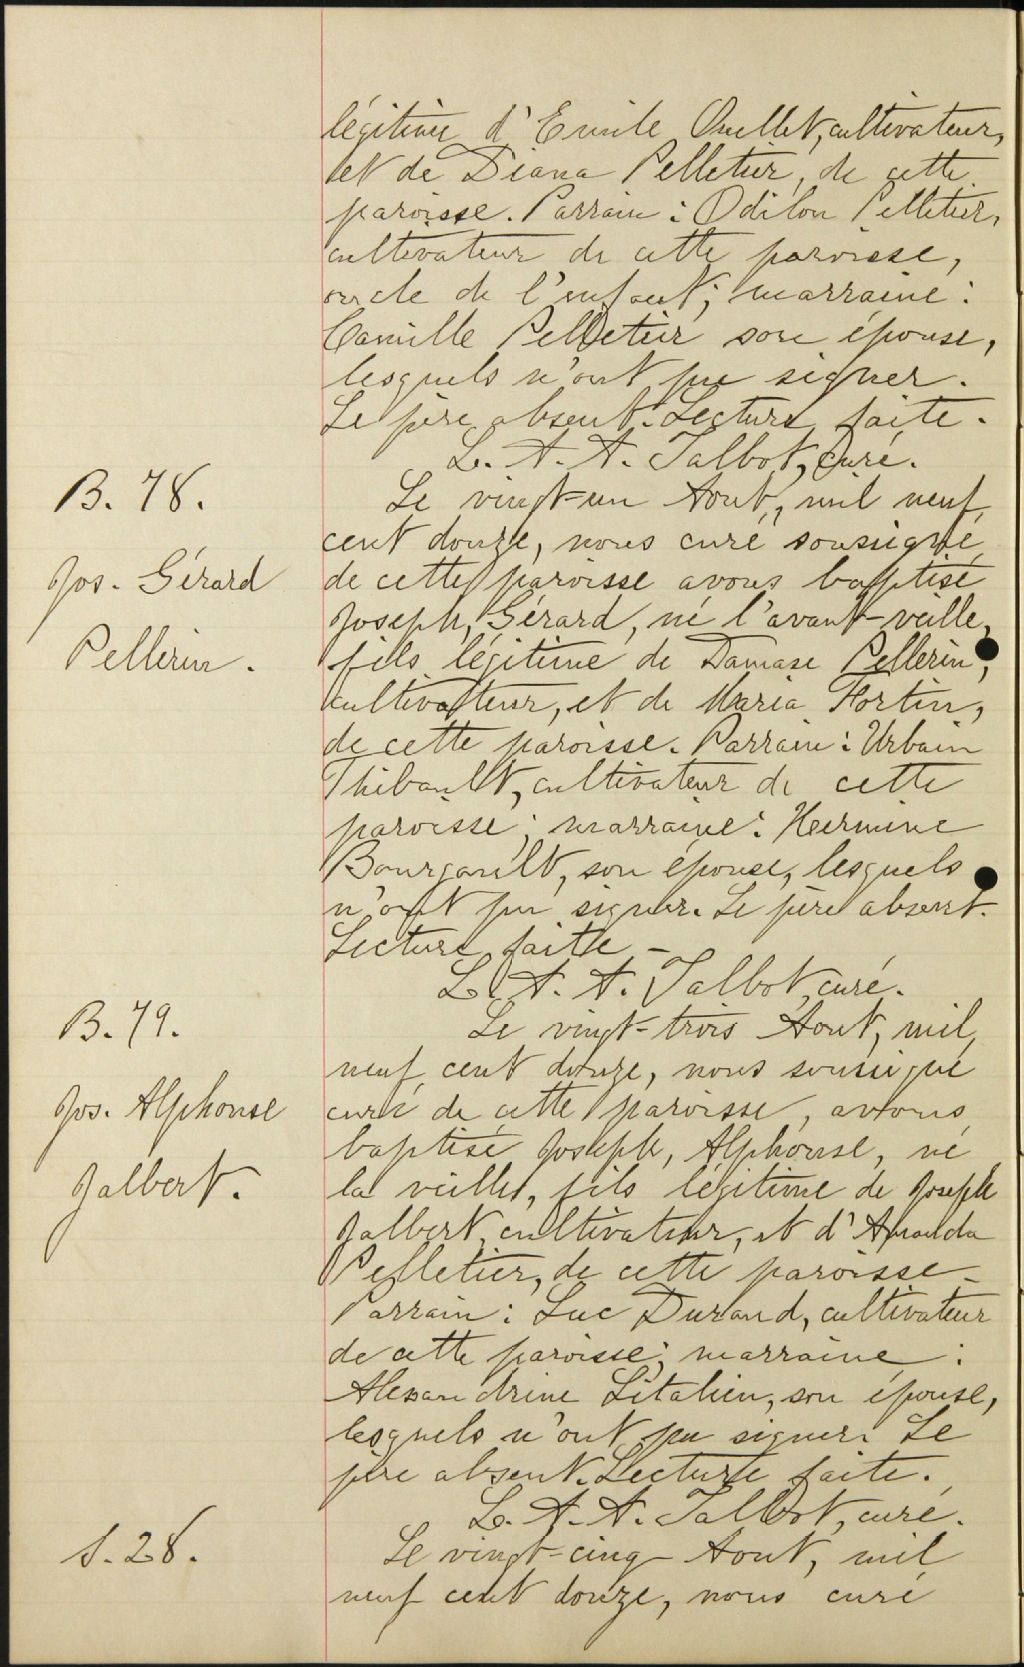 légitime d'Emile Ouellet, cultivateur,
et de Diana Pelletier, de cette
paroisse. Parrain : Odilon Pelletier,
cultivateur de cette paroisse,
oncle de l'enfant; marraine :
Camille Pelletier son épouse,
lesquels n'ont pu signer.
Le père absent. Lecture faite.
L. A. A. Talbot, curé.
B. 78.
Le vingt-un Aout, mil neuf
cent douze, nous curé soussigné
de cette paroisse avons baptisé
Jos. Gérard
Joseph, Gérard, né l'avant-veille,
Pellerin.
fils légitime de Damase Pellerin,
cultivateur, et de Maria Fortin,
de cette paroisse. Parrain : Urbain
Thibault, cultivateur de cette
paroisse; marraine : Hermine
Bourgault, son épouse, lesquels
n'ont pu signer. Le père absent.
Lecture faite -
L. A. A. Talbot, curé.
B. 79.
Le vingt-trois Aout, mil
neuf cent douze, nous soussigné
Jos. Alphonse
curé de cette paroisse, avons
baptisé Joseph, Alphonse, né
Jalbert.
la veille, fils légitime de Joseph
Jalbert, cultivateur, et d'Amanda
Pelletier, de cette paroisse -
Parrain : Luc Durand, cultivateur
de cette paroisse; marraine :
Alexandrine Litalien, son épouse,
lesquels n'ont pu signer. Le
père absent. Lecture faite.
L. A. A. Talbot, curé.
S. 28.
Le vingt-cinq Aout, mil
neuf cent douze, nous curé